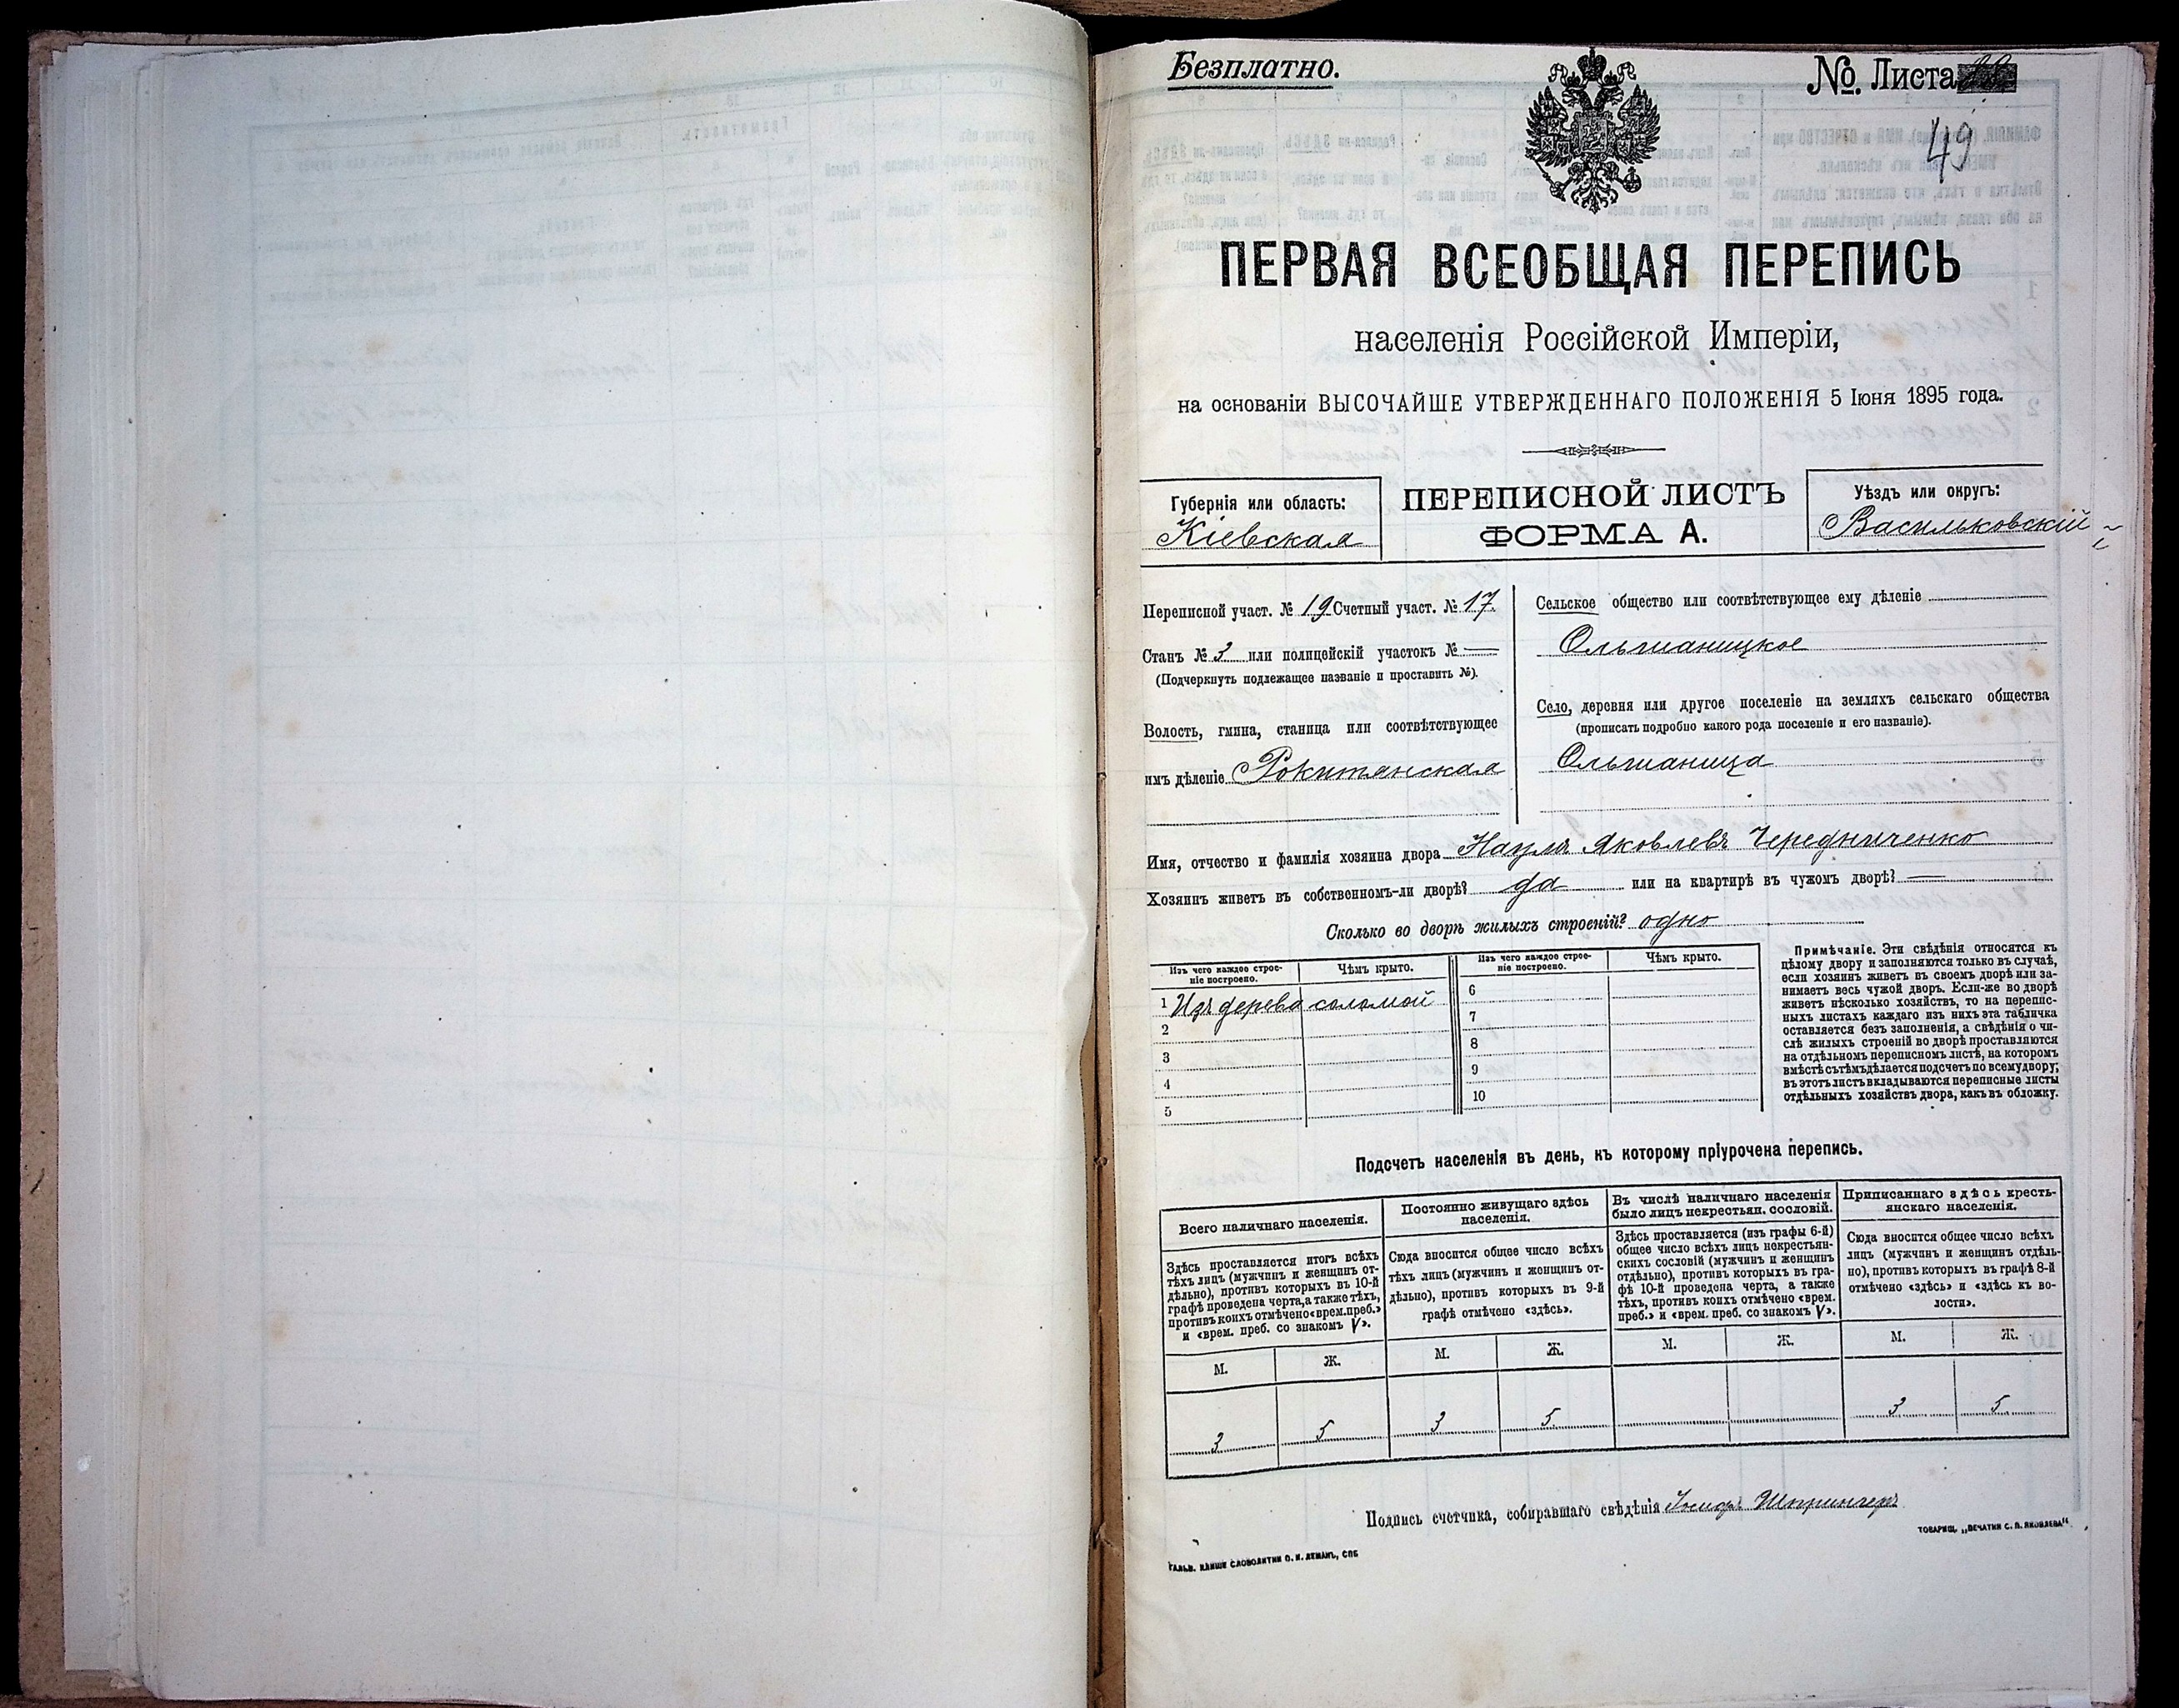 Безплатно.
№. Листа
49
ПЕРВАЯ ВСЕОБЩАЯ ПЕРЕПИСЬ
населенія Россійской Имперіи,
на основаніи ВЫСОЧАЙШЕ УТВЕРЖДЕННАГО ПОЛОЖЕНІЯ 5 Іюня 1895 года.
Губернія или область:
Кіевская
ПЕРЕПИСНОЙ ЛИСТЪ
ФОРМА А.
Уѣздъ или округъ:
Васильковскій
Переписной участ. № 19 Счетный участ. № 17.
Станъ № 3 или полицейскій участокъ № —
(Подчеркнуть подлежащее названіе и проставить №).
Волость, гмина, станица или соотвѣтствующее
имъ дѣленіе Рокитянская
Сельское общество или соотвѣтствующее ему дѣленіе
Ольшаницкое
Село, деревня или другое поселеніе на земляхъ сельскаго общества
(прописать подробно какого рода поселеніе и его названіе).
Ольшаница
Имя, отчество и фамилія хозяина двора Наумъ Яковлевъ Чередниченко
Хозяинъ живетъ въ собственномъ-ли дворѣ? да или на квартирѣ въ чужомъ дворѣ? —
Сколько во дворѣ жилыхъ строеній? одно
Изъ чего каждое строе-
ніе построено.
Чѣмъ крыто.
Изъ чего каждое строе-
ніе построено.
Чѣмъ крыто.
1 Изъ дерева соломой
2
3
4
5
6
7
8
9
10
Примѣчаніе. Эти свѣдѣнія относятся къ
цѣлому двору и заполняются только въ случаѣ,
если хозяинъ живетъ въ своемъ дворѣ или за-
нимаетъ весь чужой дворъ. Если-же во дворѣ
живетъ нѣсколько хозяйствъ, то на перепис-
ныхъ листахъ каждаго изъ нихъ эта табличка
оставляется безъ заполненія, а свѣдѣнія о чи-
слѣ жилыхъ строеній во дворѣ проставляются
на отдѣльномъ переписномъ листѣ, на которомъ
вмѣстѣ съ тѣмъ дѣлается подсчетъ по всему двору;
въ этотъ листъ вкладываются переписные листы
отдѣльныхъ хозяйствъ двора, какъ въ обложку.
Подсчетъ населенія въ день, къ которому пріурочена перепись.
Всего наличнаго населенія.
Постоянно живущаго здѣсь
населенія.
Въ числѣ наличнаго населенія
было лицъ некрестьян. сословій.
Приписаннаго здѣсь кресть-
янскаго населенія.
Здѣсь проставляется итогъ всѣхъ
тѣхъ лицъ (мужчинъ и женщинъ от-
дѣльно), противъ которыхъ въ 10-й
графѣ проведена черта, а также тѣхъ,
противъ коихъ отмѣчено «врем. преб.»
и «врем. преб. со знакомъ V».
Сюда вносится общее число всѣхъ
тѣхъ лицъ (мужчинъ и женщинъ от-
дѣльно), противъ которыхъ въ 9-й
графѣ отмѣчено «здѣсь».
Здѣсь проставляется (изъ графы 6-й)
общее число всѣхъ лицъ некрестьян-
скихъ сословій (мужчинъ и женщинъ
отдѣльно), противъ которыхъ въ гра-
фѣ 10-й проведена черта, а также
тѣхъ, противъ коихъ отмѣчено «врем.
преб.» и «врем. преб. со знакомъ V».
Сюда вносится общее число всѣхъ
лицъ (мужчинъ и женщинъ отдѣль-
но), противъ которыхъ въ графѣ 8-й
отмѣчено «здѣсь» и «здѣсь въ во-
лости».
М. Ж. М. Ж. М. Ж. М. Ж.
3 5 3 5 3 5
Подпись счетчика, собиравшаго свѣдѣнія Іосифъ Шпрингеръ
ГАЛЬВ. КЛИШЕ СЛОВОЛИТНИ О. И. ЛЕМАНЪ, СПБ
ТОВАРИЩ. „ПЕЧАТНЯ С. П. ЯКОВЛЕВА“